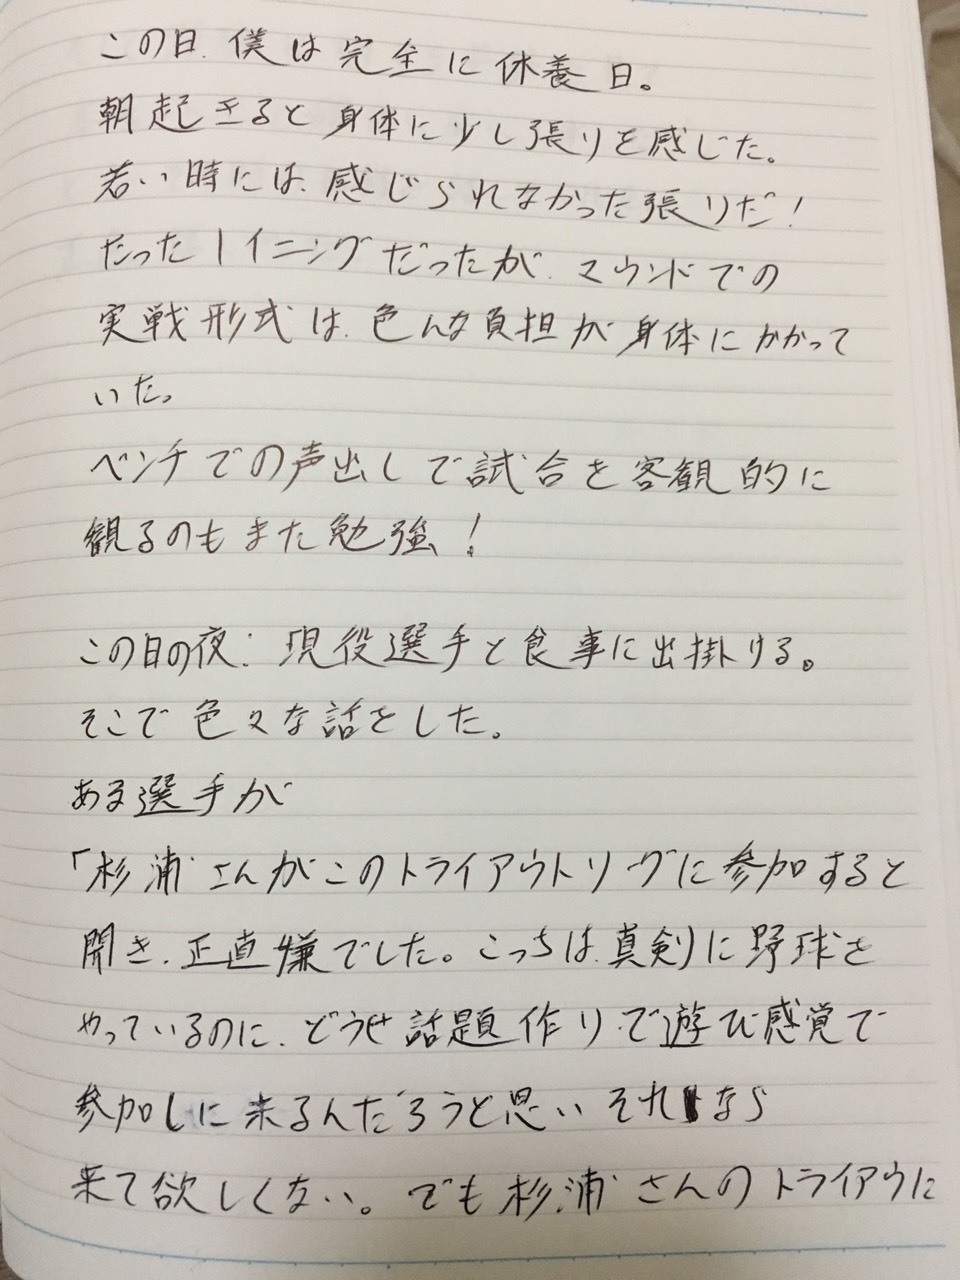 この日、僕は完全に休養日。
朝起きると身体に少し張りを感じた。
若い時には、感じられなかった張りだ！
たった1イニングだったが、マウンドでの
実戦形式は、色んな負担が身体にかかって
いた。
ベンチでの声出しで試合を客観的に
観るのもまた勉強！
この日の夜、現役選手と食事に出掛ける。
そこで色々な話をした。
ある選手が
「杉浦さんがこのトライアウトリーグに参加すると
聞き、正直嫌でした。こっちは、真剣に野球を
やっているのに、どうせ話題作りで遊び感覚で
参加しに来るんだろうと思いそれなら
来て欲しくない。でも杉浦さんのトライアウに